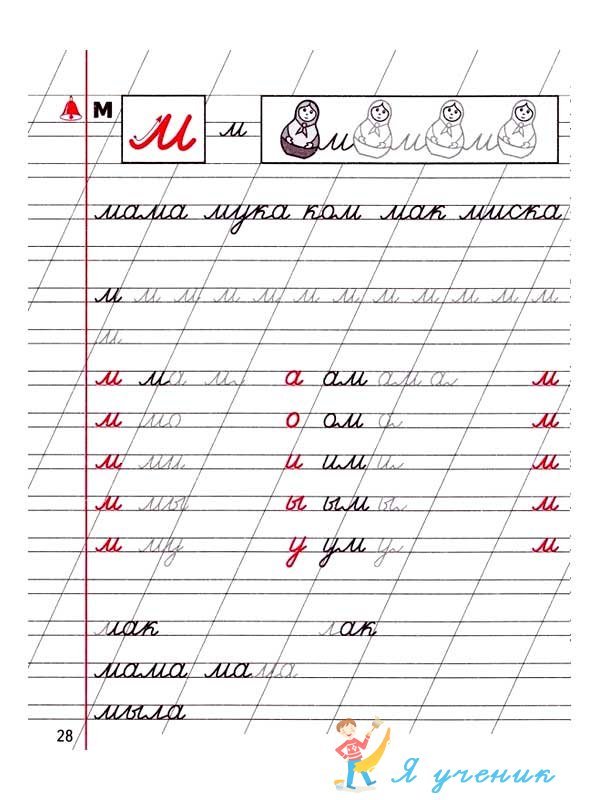 М м м м м м
мама мука ком мак миска
м м м м м м м м м м м м
м
м ма м а ам ам а м
м мо о ом о м
м ми и им и м
м мы ы ым ы м
м му у ум у м
мак лак
мама мама
мыла
28
Я ученик